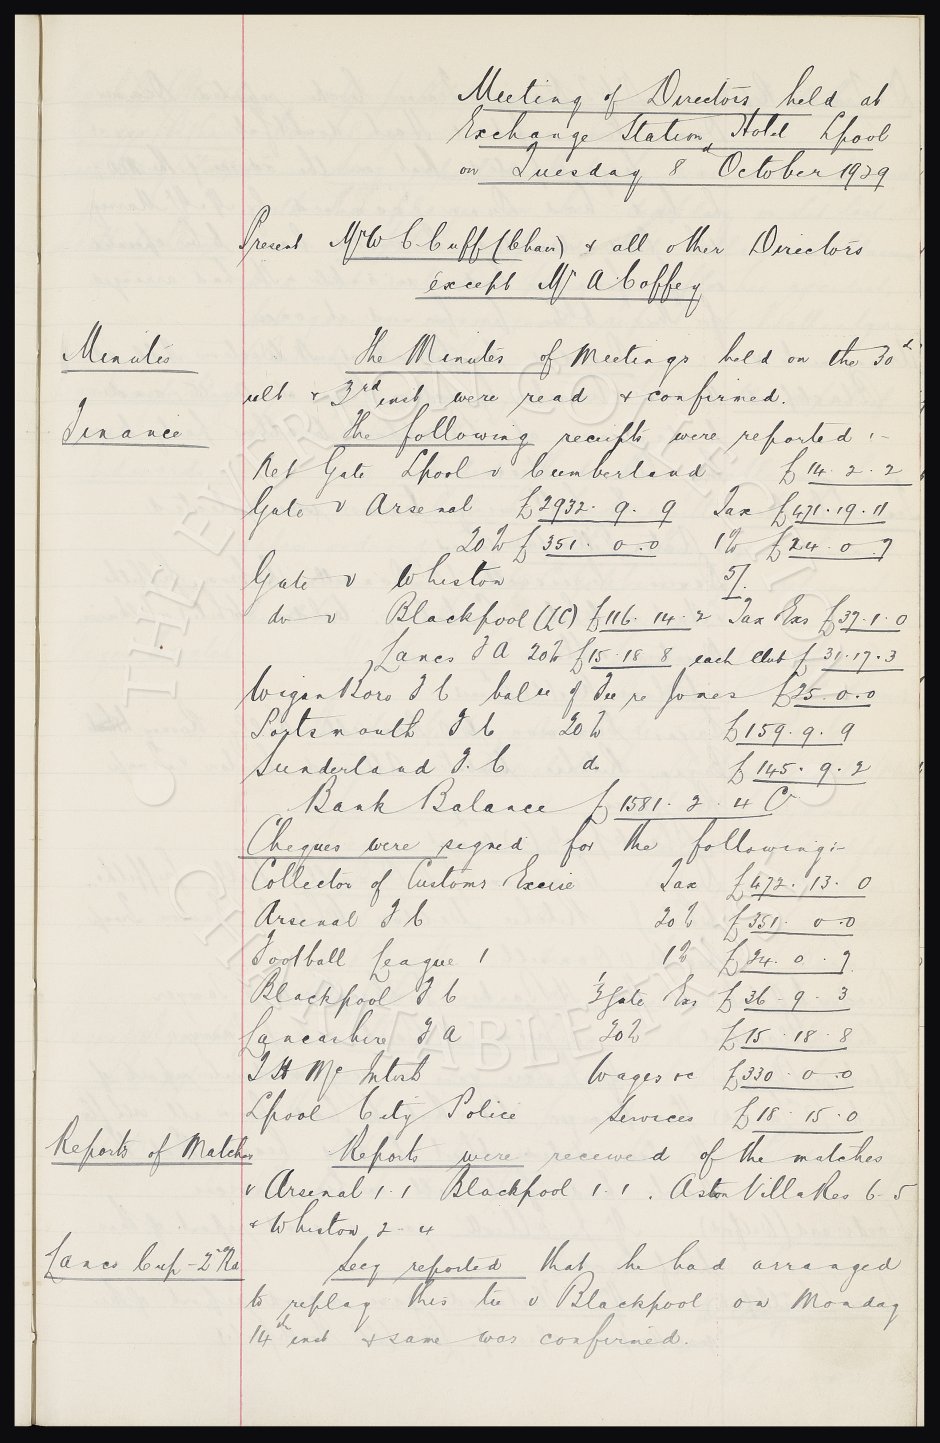 Meeting of Directors held at
Exchange Station Hotel Lpool
on Tuesday 8th October 1929
Present Mr W C Cuff (Chair) & all other Directors
except Mr A Coffey
Minutes The Minutes of Meetings held on the 30th
ult & 3rd inst were read & confirmed.
Finance The following receipts were reported :-
Ret Gate Lpool v Cumberland £14. 2. 2
Gate v Arsenal £2932. 9. 9 Tax £471. 19. 11
20% £351. 0. 0 1% £24. 0. 7
Gate v Whiston 5/.
do v Blackpool (LC) £116. 14. 2 Tax Exs £37. 1. 0
Lancs F A 20% £15. 18. 8 each club £31. 17. 3
Wigan Boro F C balce of Fee re Jones £25. 0. 0
Portsmouth F C 20% £159. 9. 9
Sunderland F. C do £145. 9. 2
Bank Balance £1581. 2. 4 Cr
Cheques were signed for the following:-
Collector of Customs Excise Tax £472. 13. 0
Arsenal F C 20% £351. 0. 0
Football League 1% £24. 0. 7
Blackpool F C ½ Gate Exs £36. 9. 3
Lancashire F A 20% £15. 18. 8
T H Mc Intosh Wages &c £330. 0. 0
Lpool City Police Services £18. 15. 0
Reports of Matches Reports were received of the matches
v Arsenal 1. 1 Blackpool 1. 1. Aston Villa Res 6. 5
& Whiston 2 - 4
Lancs Cup - 2nd Rd Secy reported that he had arranged
to replay this tie v Blackpool on Monday
14th inst & same was confirmed.
THE EVERTON COLLECTION
CHARITABLE TRUST